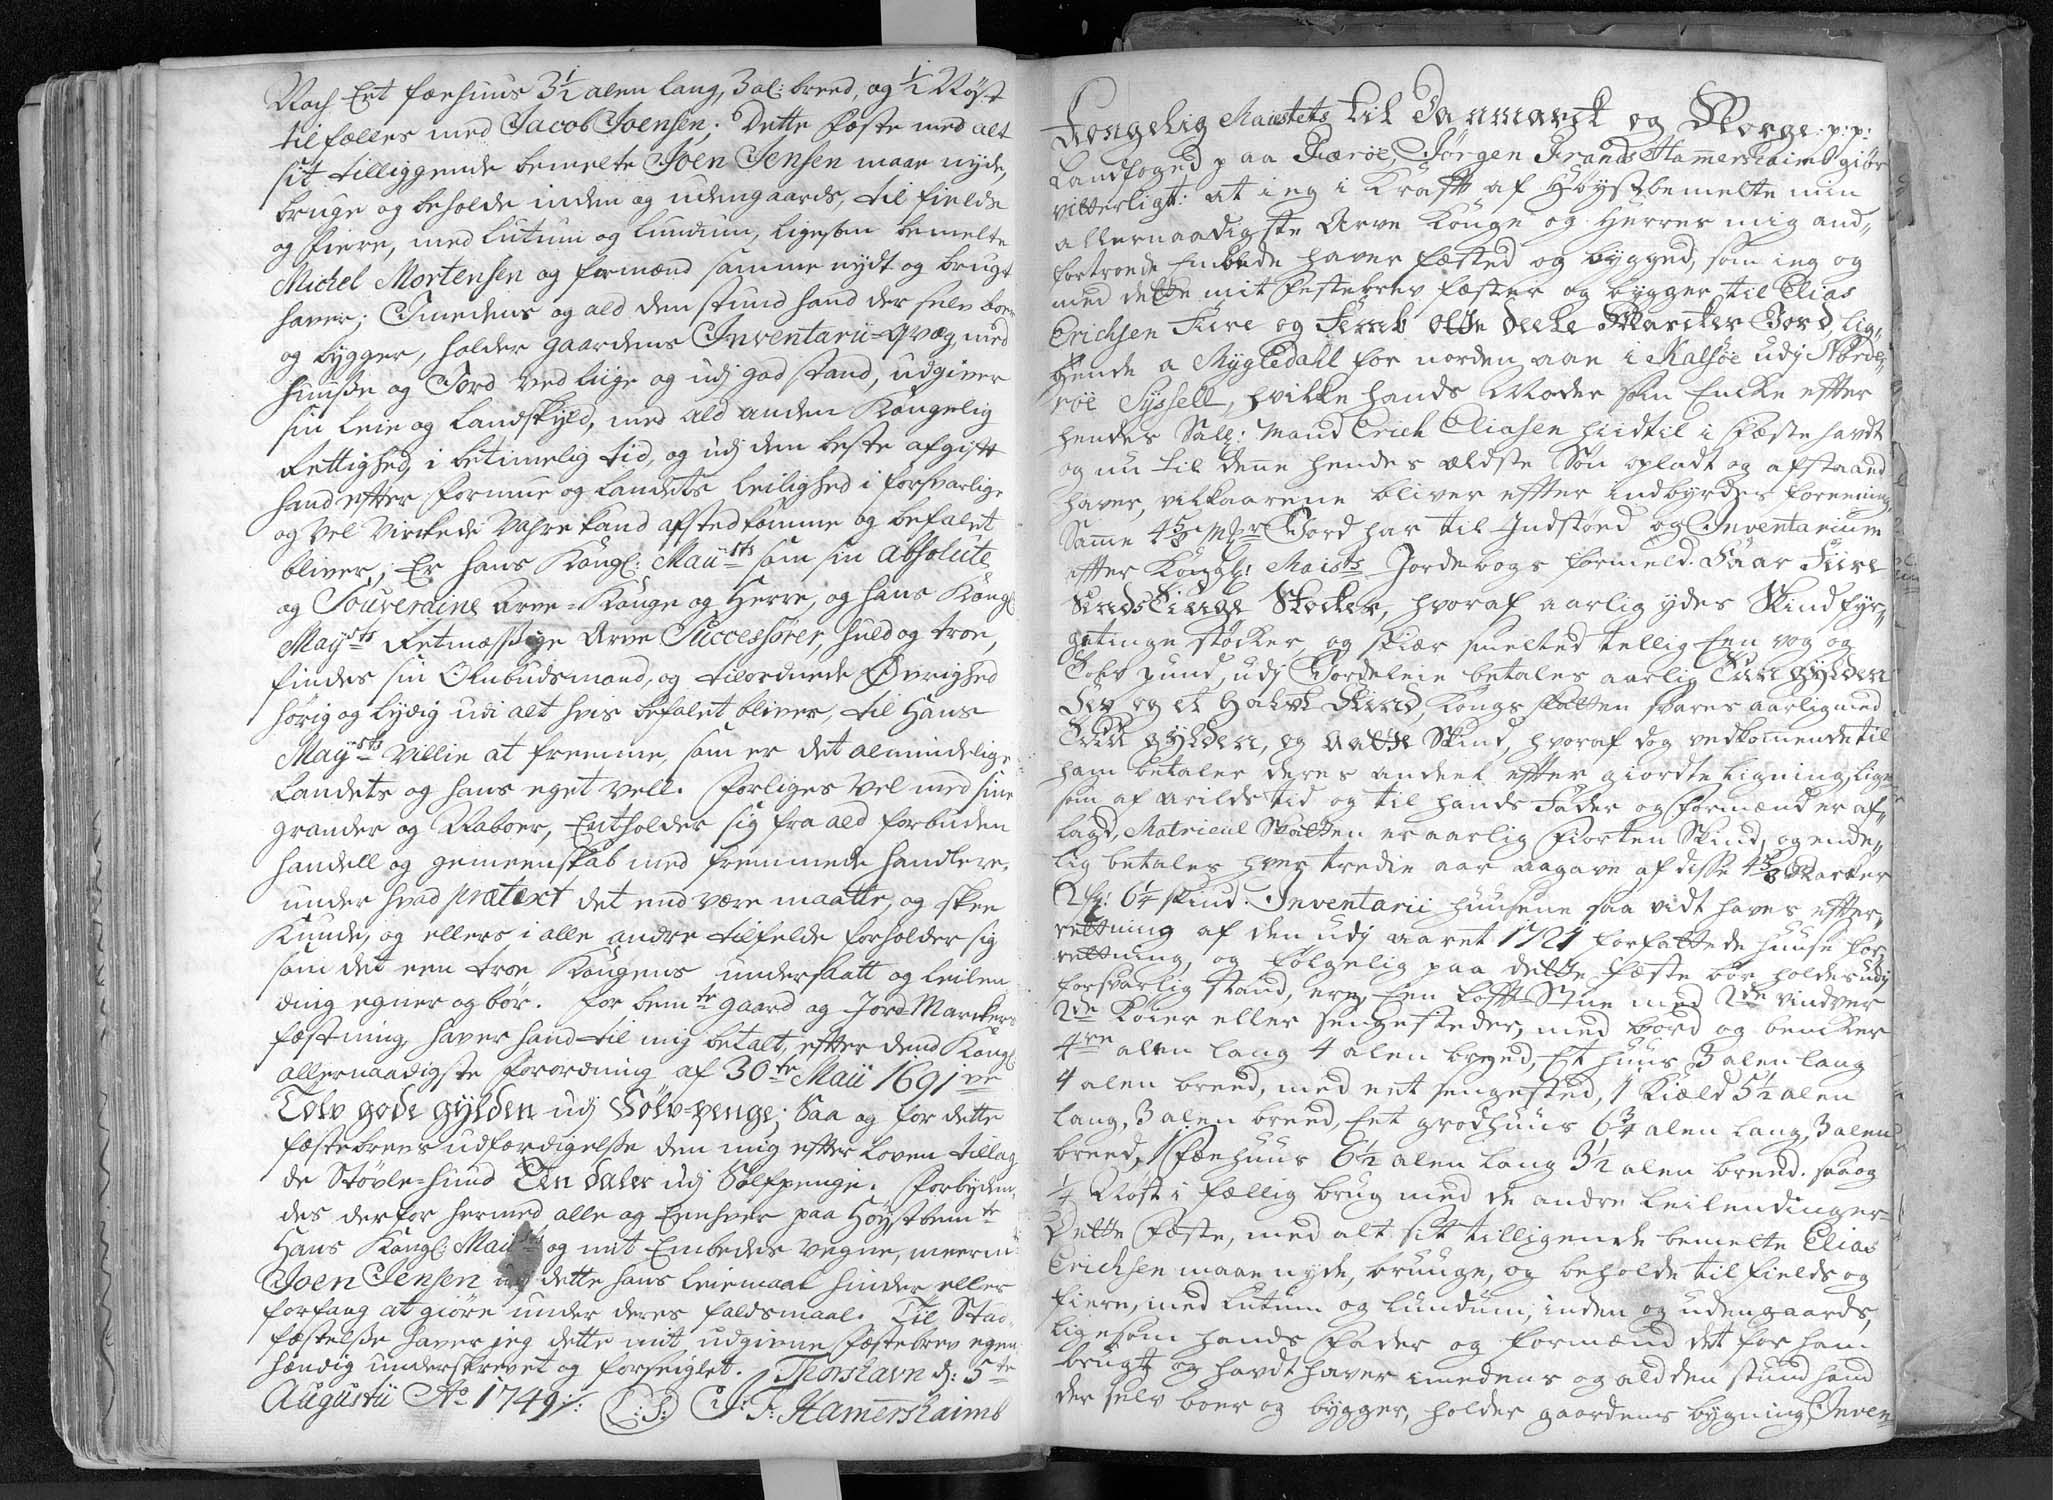 Noch Eet fæehuus 3½ alen lang, 3 al: breed, og ½ Røst
til fælles med Jacob Joensen; Dette fæste med alt
sit tilliggende bemelte Joen Jensen maae nyde,
bruge og beholde inden og udengaards, til fields
og fiere, med lutum og lundum, ligesom bemelte
Michel Mortensen og formænd samme nydt og brugt
haver; Imedens og ald den stund hand der selv boer
og bygger, holder gaardens Inventarii-Qvæg med
huuse og Jord ved liige og udj god stand, udgiver
sin leie og Landskyld, med ald anden Kongelig
Rettighed, i betimelig tid, og udj den beste afgift
hand efter formue og Landets leilighed i forsvarlige
og vel virckede Vahre kand afstedkomme og befalet
bliver; Er hans Kongl: Mayts som sin absolute
og Souveraine Arve-Konge og Herre, og hans Kongl
Mayts Retmæssige Arve Successorer, huld og troe,
findes sin Ombudsmand, og tilordnede Øvrighed
hörig og lydig udi alt hvis befalet bliver, til Hans
Mayts Villie at fremme, som er det almindelige
Landets og hans eget vell. Forliges vel med sine
grander og Naboer, Entholder sig fra ald forbuden
handell og gemeenskab med fremmede handlere,
under hvad prætext det end være maatte, og skee
Kunde, og ellers i alle andre tilfelde forholder sig
som det een troe Kongens undersaatt og leilen
ding egner og bör. For bemte gaard og Jord-Marckers
fæstning, haver hand til mig betalt, efter dend Kongl
allernaadigste forordning af 30te Maii 1691ve
Tolv gode gylden udj Sölv-penge; Saa og for dette
fæstebrevs udfærdigelse den mig efter loven tillag
de Stövle-hund Een daler udj Sölfpenge. Forbyden
des derfor hermed alle og Eenhver paa Höystbemte
Hans Kongl: Mayts og mit Embedes vegne, meerm
Joen Jensen dette hans leiemaal hinder eller
forfang at giöre under deres faldsmaal. Til Stad
fæstelse haver jeg dette mit udgivne fæstebrev egen
hændig underskrevet og forseiglet. Thorshavn d: 5te
Augustii Ao 1749 ∕: (L:S:) J:F: Hamershaimb
Kongelig Maiestets til Danmarck og Norge: p:p:
Landfoged paa Færöe, Jörgen Frands Hamershaimb giör
vitterligt: at ieg i Krafft af Höystbemelte min
allernaadigste Arve Konge og Herres mig and„
fortroede Embede haver fæsted og bygged, som ieg og
med dette mit Festebrev fæster og bygger til Elias
Erichsen Fiire og Femb otte deele Marcker Jord, lig„
gende a Mygledahl for norden aae i Kalsöe udj Norde„
röe Syssell, hvilke hands Moder som Enke efter
hendes Sall: Mand Erich Eliasen hiidtil i Fæste havdt
og nu til denne hendes ældste Sön opladt og afstaaed
haver, vilkaarene bliver efter indbyrdes foreening,
Same 4⅝ Mkr Jord har til Indstöed og Inventarium
efter Kongl: Maists Jordebogs formeld. Faar Fiire
Sindstiuge Stocker, hvoraf aarlig ydes Skind fyr„
getiuge stöcker, og skiær smelted tellig Een vog og
Tolv pund, udj Jordeleie betales aarlig Een gylden
Fev og et halvt Skind, Kongs skatten svares aarlig med
gylden, og Aatte Skind, hvoraf dog vedkomende til
ham betaler deres andeel efter giordte ligning, lige
som af arilds tid og til hands Fader og Formænd er af„
lagd, Matricul Skatten er aarlig Fiorten Skind, og ende„
lig betales hver tredie aar aagave af disse 4⅝ Marker
2 g: 6¼ skind. Inventarii huusene saa vidt haves efter„
rettning af den udj aaret 1721 forfattede huuse for„
rettning, og fölgelig paa dette Fæste bör holdes udj
forsvarlig stand, ere, Een Lofft Stue med 2de vindver
2de Koier eller sengesteder, med bord og bencker
4re alen lang 4 alen breed, Et huus 3 alen lang
4 alen breed, med eet sengested, 1 Kiæld 5½ alen
lang, 3 alen breed, Eet grodhuus 6¾ alen lang, 3 alen
breed, 1 Fæehuus 6½ alen lang 3½ alen breed. saa og
¼ Röst i fællig brug med de andre leilendinger=
Dette Fæste, med alt sit tilligende bemelte Elias
Erichsen maae nyde, bruuge, og beholde til fields og
fiere, med Lutum og lundum, inden og udengaards,
ligesom hands Fader og formænd det for ham
brugt og havdt haver imedens og ald den stund hand
der selv boer og bygger, holder gaardens bygning, Inven=